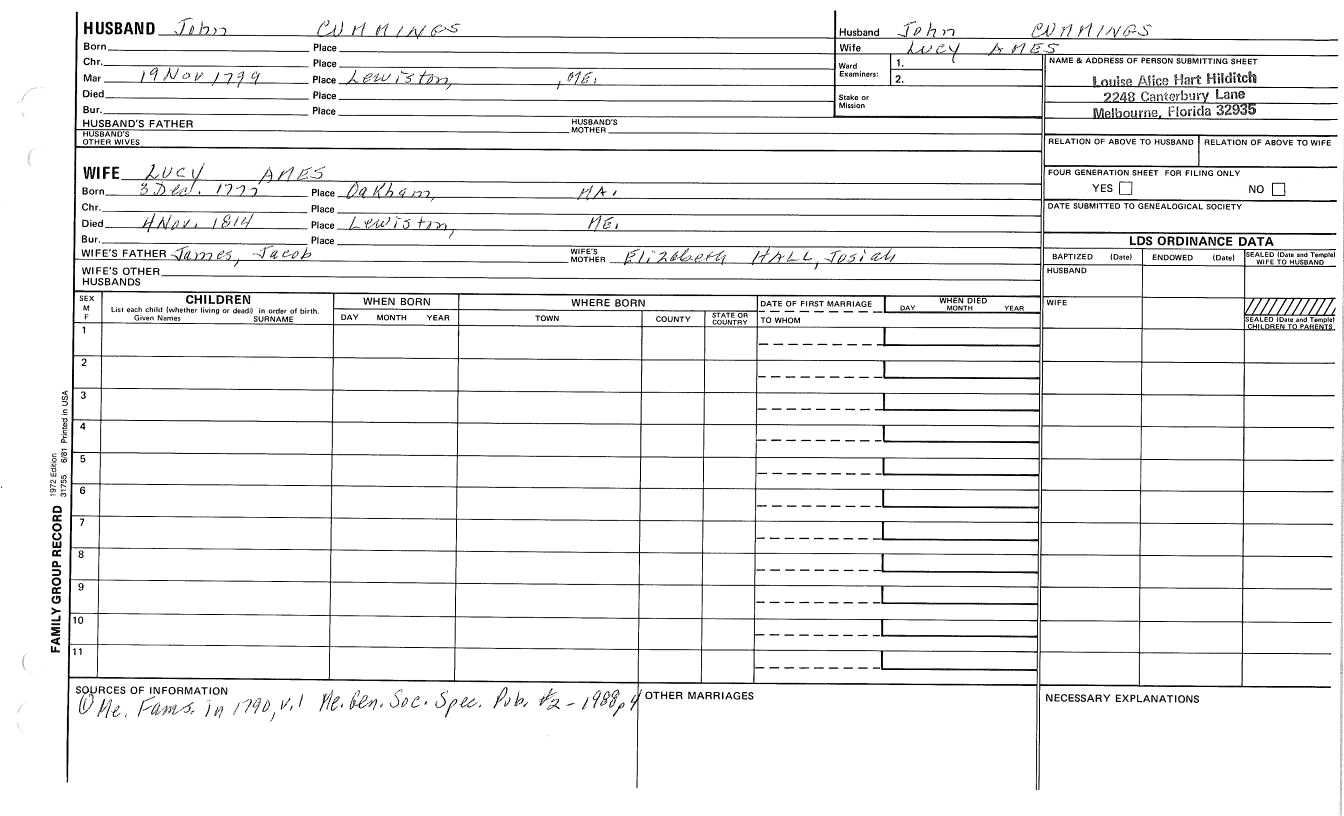 HUSBAND John CUMMINGS
Born Place
Chr. Place
Mar 19 Nov 1799 Place Lewiston, , ME.
Died Place
Bur. Place
HUSBAND'S FATHER HUSBAND'S MOTHER
HUSBAND'S OTHER WIVES
Husband John CUMMINGS
Wife LUCY AMES
Ward Examiners: 1.
2.
Stake or Mission
NAME & ADDRESS OF PERSON SUBMITTING SHEET
Louise Alice Hart Hilditch
2248 Canterbury Lane
Melbourne, Florida 32935
RELATION OF ABOVE TO HUSBAND RELATION OF ABOVE TO WIFE
FOUR GENERATION SHEET FOR FILING ONLY
YES NO
DATE SUBMITTED TO GENEALOGICAL SOCIETY
WIFE LUCY AMES
Born 3 Dec. 1777 Place Oakham, MA.
Chr. Place
Died 4 Nov. 1814 Place Lewiston, ME.
Bur. Place
WIFE'S FATHER James, Jacob WIFE'S MOTHER Elizabeth HALL, Josiah
WIFE'S OTHER HUSBANDS
LDS ORDINANCE DATA
BAPTIZED (Date) ENDOWED (Date) SEALED (Date and Temple) WIFE TO HUSBAND
HUSBAND
WIFE
SEALED (Date and Temple) CHILDREN TO PARENTS
SEX M F
CHILDREN
List each child (whether living or dead) in order of birth.
Given Names SURNAME
WHEN BORN
DAY MONTH YEAR
WHERE BORN
TOWN COUNTY STATE OR COUNTRY
DATE OF FIRST MARRIAGE
TO WHOM
WHEN DIED
DAY MONTH YEAR
1
2
3
4
5
6
7
8
9
10
11
FAMILY GROUP RECORD
1972 Edition
31755 6/81 Printed in USA
SOURCES OF INFORMATION
① Me. Fams. in 1790, v.1 Me. Gen. Soc. Spec. Pub. #2 - 1988, p 4
OTHER MARRIAGES
NECESSARY EXPLANATIONS